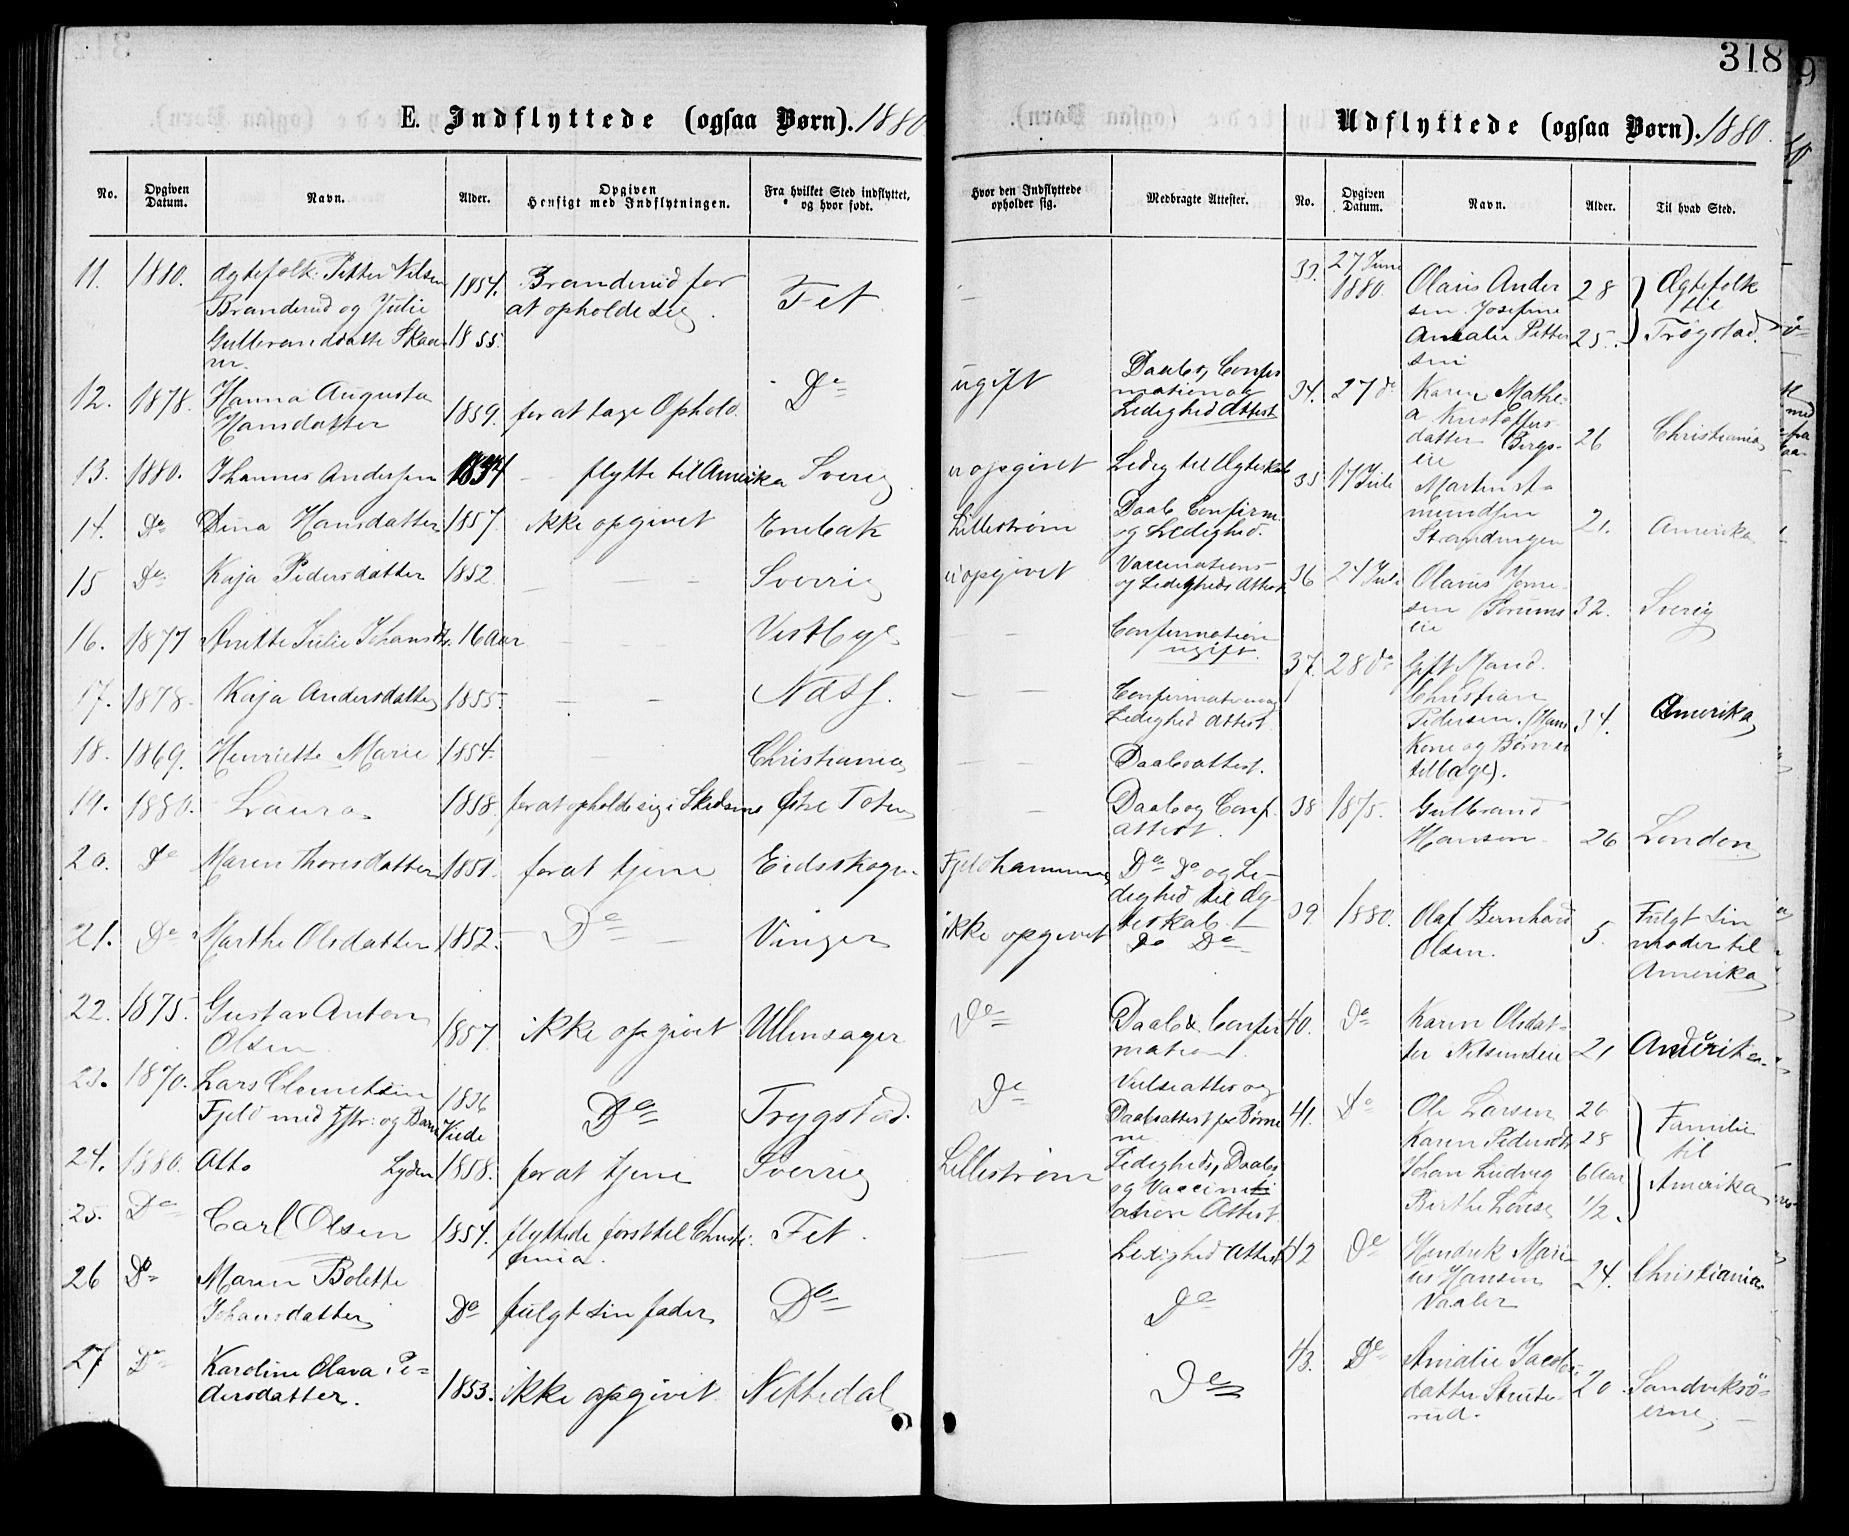 318
E. Indflyttede (ogsaa Børn). 1880
No. Opgiven Datum. Navn. Alder. Opgiven Hensigt med Indflytningen. Fra hvilket Sted indflyttet, og hvor født. Hvor den Indflyttede opholder sig. Medbragte Attester.
11. 1880. Ægtefolk. Petter Nilsen 1854. Branderud for Fet —
Branderud og Julie at opholde sig.
Gulbrandsdatte Skaa 1855.
12. 1878. Hanna Augusta 1859. for at tage Ophold. Do ugift Daabs, Confir
Hansdatter mation og
Ledighed Attest
13. 1880. Johannes Andersen 1834 — flytte til Amerika Sverig uopgivet Ledig til Ægteskab
14. Do Dina Hansdatter 1857. ikke opgivet Enebak Lillestrøm Daab Confirm.
og Ledighed.
15 Do Kaja Pedersdatter 1852 — — — Sverrig uopgivet Vaccinations-
og Ledigheds Attest
16. 1877 Anette Julie Johansdtr. 16 Aar — Vestby — Confirmation
ugift.
17. 1878. Kaja Andersdatter 1855. — — Næs — — Confirmation og
Ledighed Attest
18. 1869. Henriette Marie 1854. — Christiania — — Daabsattest.
19. 1880. Laura 1858. for at opholde sig i Skedsmo Østre Toten — Daab og Conf.
attest.
20. Do Maren Thoresdatter 1851. for at tjene Eidsskogen Fjeldhammer Do Do og Le-
dighed til Æg-
teskab.
21. Do Marthe Olsdatter 1852. Do — Vinger ikke opgivet Do Do
22. 1875. Gustav Anton 1857 ikke opgivet Ullensager Do Daab & Confir
Olsen mation.
23. 1870. Lars Clemetsen 1836 Do Trygstad. Do Vielseattest og
Fjeld med Hstr: og Barn Viede Daabsattest for Børne
ne
24. 1880. Otto Lyden 1858. for at tjene Sverrig Lillestrøm Ledigheds, Daabs
og Vaccin
ations Attest
25. Do Carl Olsen 1854. flyttede først til Christi- Fet. — Ledighed Attest
ania.
26 Do Maren Bolette Do fulgt sin fader Do Do
Johansdatter
27 Do Karoline Olava Pe- 1853. ikke opgivet Nittedal Do
dersdatter.
Udflyttede (ogsaa Børn). 1880.
No. Opgiven Datum. Navn. Alder. Til hvad Sted.
33. 27 Juni 1880. Olaus Ander 28 Ægtefolk
sen. Josefine til
Amalie Petter 25. Trøgstad.
sen
34. 27 do Karen Mathe-
a Kristoffers
datter Bergs- 26 Christiania
eie
35 17 Juli Martin A
mundsen
Strandengen 21. Amerika
36 24 Juli Olaus Jorne-
sen 32. Sverig
eie
37. 28 do Gift Mand.
Christian
Pedersen. (Hans 34. Amerika
Kone og Børn er
tilbage).
38 1875. Gulbrand
Hansen 26 London
39 1880. Olaf Bernhard 5. Fulgt sin
Olsen. moder til
Amerika
40. Do Karen Olsdat-
ter Nilsendeie 21 Amerika
41. Do Ole Larsen 26 Familie
Karen Pedersdt. 28 til
Johan Ludvig 6 Aar Amerika
Birthe Lovise 1/2.
42 Do Hendrik Mari
us Hansen 24. Christiania
Vaaler
43. Do Amalie Jacobs-
datter Strute- 20. Sandviksø-
rud. erne